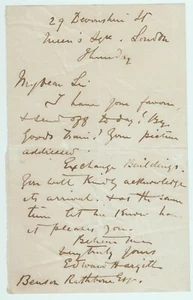 29 Devonshire St
Queen's Sqre. London
Thursday
My dear Sir
I have your favor,
& send off to day (By
Goods Train) your picture
addressed
Exchange Buildings.
You will kindly acknowledge
its arrival. & at the same
time let me know how
it pleases you.
Believe me
very truly yours
Edward Hargitt
Benson Rathbone Esqr.